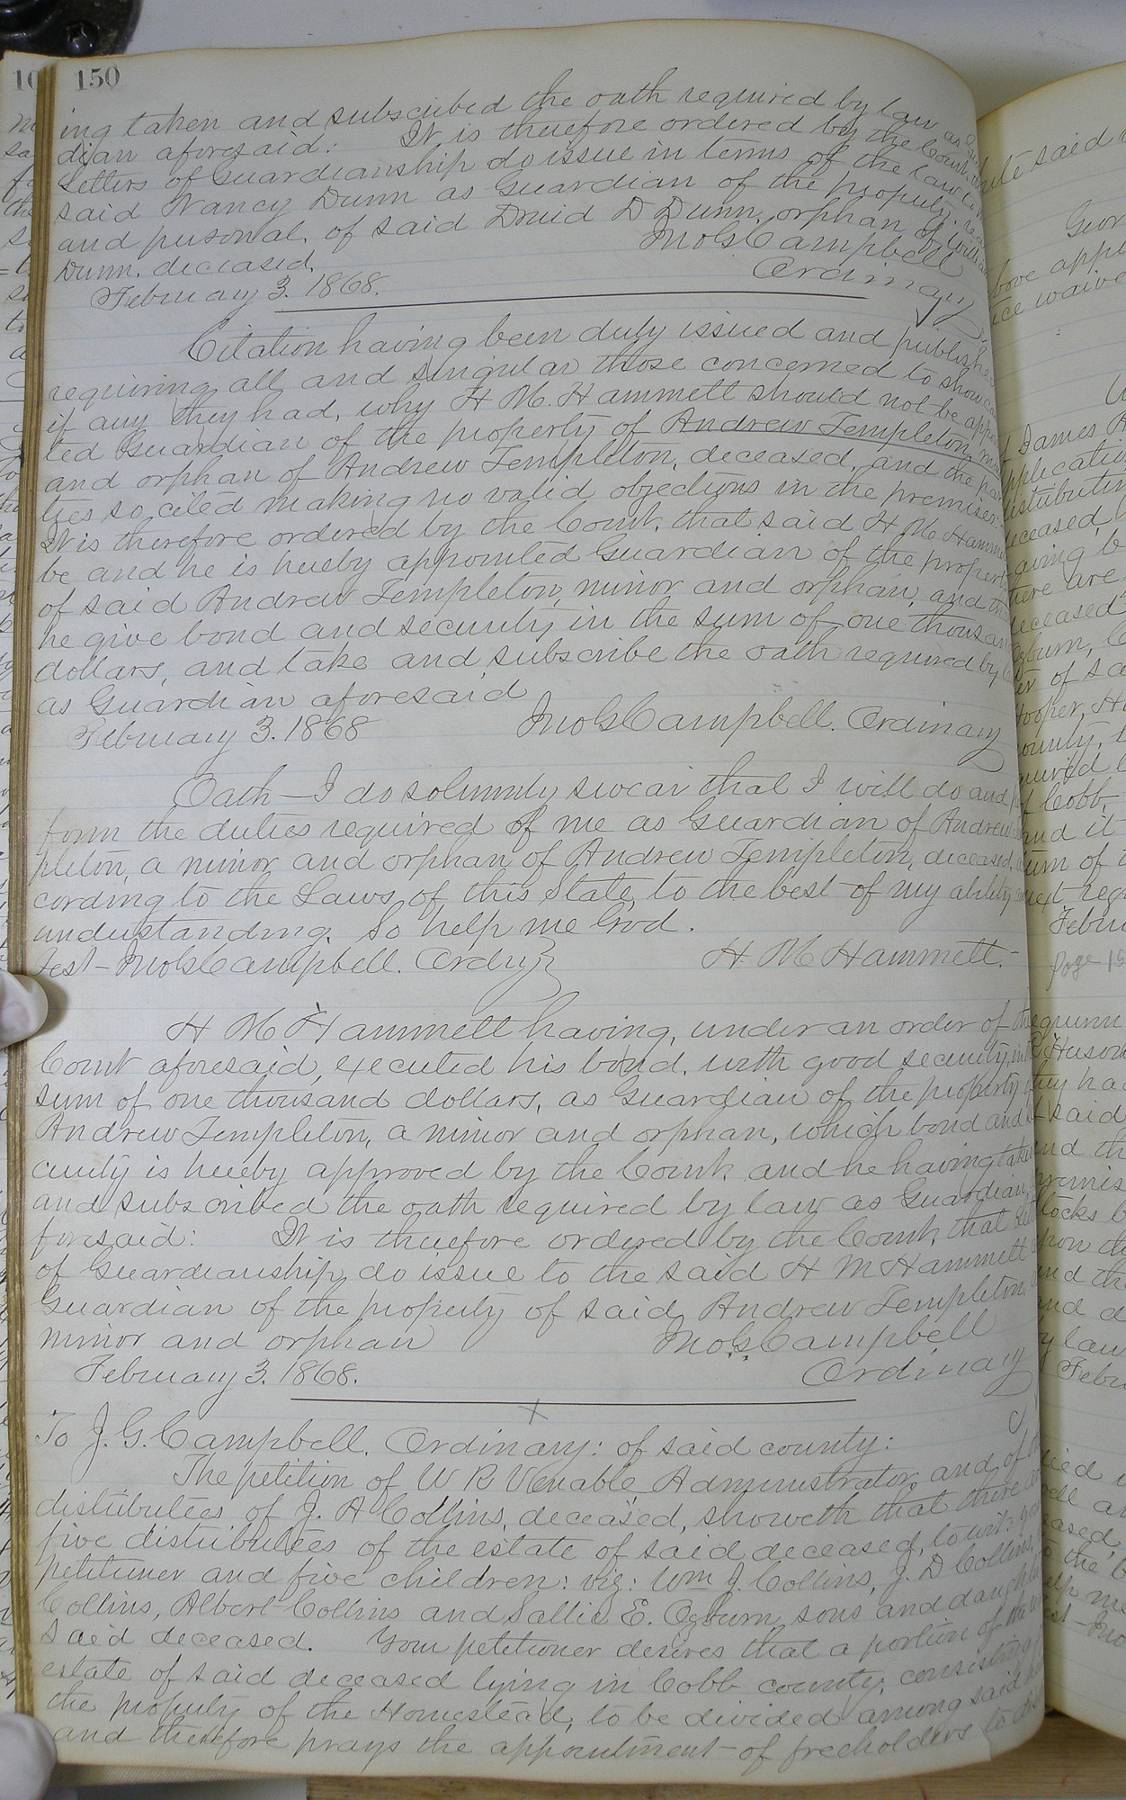 150
ing taken and subscribed the oath required by law as Guar
dian aforesaid: It is therefore ordered by the Court, that
Letters of Guardianship do issue in terms of the law to
said Nancy Dunn as Guardian of the property, real
and personal, of said David D Dunn, orphan of
Dunn, deceased.
Jno G Campbell
February 3. 1868. Ordinary
Citation having been duly issued and published
requiring all and singular those concerned to show cause
if any they had, why H M. Hammett should not be appoin
ted Guardian of the property of Andrew Templeton, minor
and orphan of Andrew Templeton, deceased, and the par
ties so cited making no valid objections in the premises:
It is therefore ordered by the Court, that said H M Hammett
be and he is hereby appointed Guardian of the property
of said Andrew Templeton, minor and orphan, and that
he give bond and security in the sum of one thousand
dollars, and take and subscribe the oath required by law
as Guardian aforesaid
February 3. 1868 Jno G Campbell. Ordinary
Oath – I do solemnly swear that I will do and per
form the duties required of me as Guardian of Andrew Tem
pleton, a minor and orphan of Andrew Templeton, deceased, ac
cording to the Laws of this State, to the best of my ability and
understanding. So help me God.
Test – Jno G Campbell. Ordry } H M Hammett.
H M Hammett having, under an order of the
Court aforesaid, executed his bond, with good security, in the
sum of one thousand dollars, as Guardian of the property of
Andrew Templeton, a minor and orphan, which bond and se
curity is hereby approved by the Court and he having taken
and subscribed the oath required by law as Guardian a
foresaid: It is therefore ordered by the Court, that Letters
of Guardianship do issue to the said H M Hammett
Guardian of the property of said Andrew Templeton,
minor and orphan Jno G. Campbell
February 3. 1868. Ordinary
To J. G. Campbell. Ordinary: of said county:
The petition of W R Venable Administrator, and of the
distributees of J. A Collins, deceased, showeth that there are
five distributees of the estate of said deceased, to wit: your
petitioner and five children: viz: Wm J. Collins, J. D Collins,
Collins, Albert Collins and Sallie E. Ogburn, sons and daughter of
said deceased. Your petitioner desires that a portion of the
estate of said deceased lying in Cobb county, consisting of
the property of the Homestead, to be divided among said
and therefore prays the appointment of freeholders to